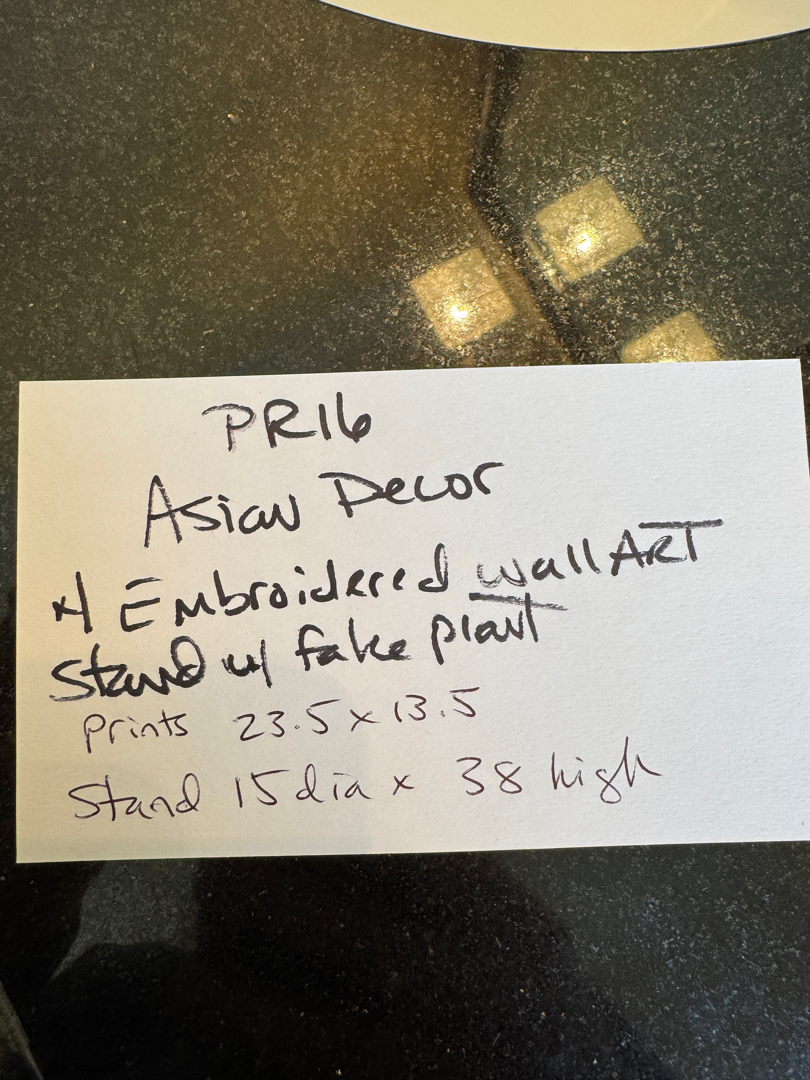 PR16
Asian Decor
x4 Embroidered wall ART
Stand w/ fake plant
Prints 23.5 x 13.5
Stand 15 dia x 38 high